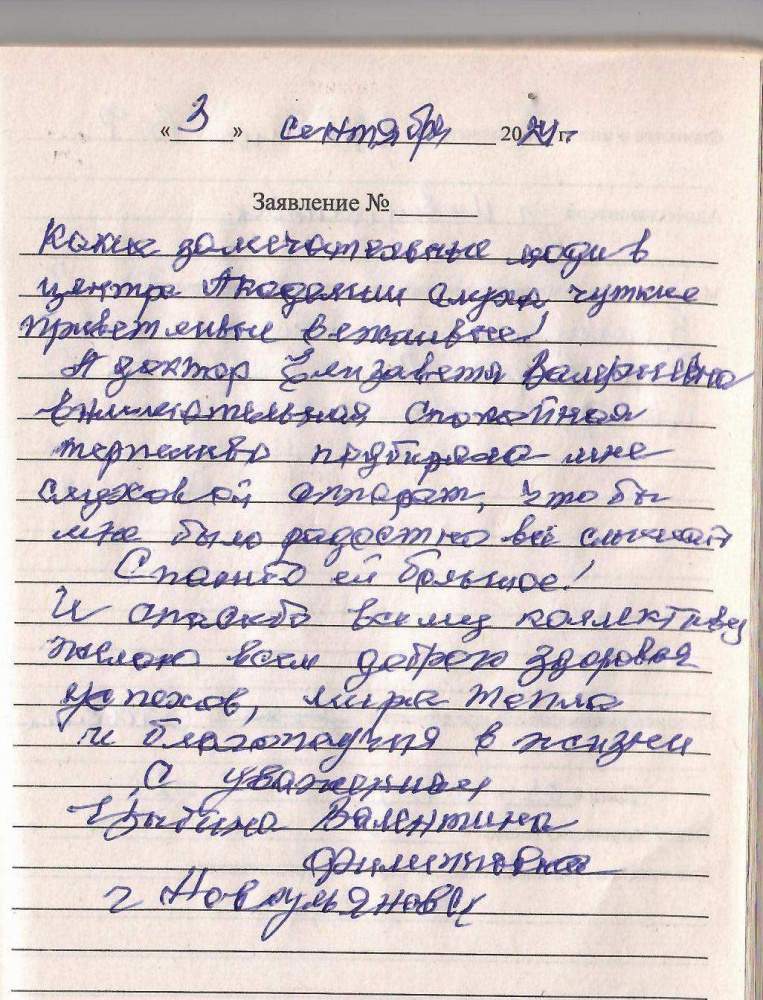 « 3 » сентября 2021 г.
Заявление №
Какие замечательные люди в
центре Академии слуха чуткие
приветливые вежливые!
А доктор Елизавета Валериевна
внимательная спокойная
терпеливо подбирала мне
слуховой аппарат, что бы
мне было радостно всё слышать
Спасибо ей большое!
И спасибо всему коллективу
желаю всем добра здоровья
успехов, мира тепла
и благополучия в жизни
С уважением
Валентина
Филипповна
г Новоульяновск